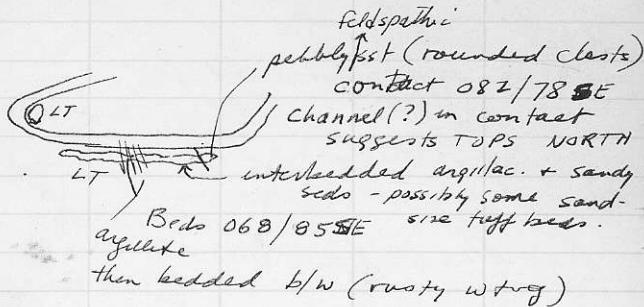 feldspathic
pebbly sst (rounded clasts)
contact 082/78 SE
LT
Channel (?) in contact
suggests TOPS NORTH
LT
interbedded argillac. + sandy
seds - possibly some sand-
size tuff beds.
Beds 068/85 SE
argillite
then bedded b/w (rusty wtvg)